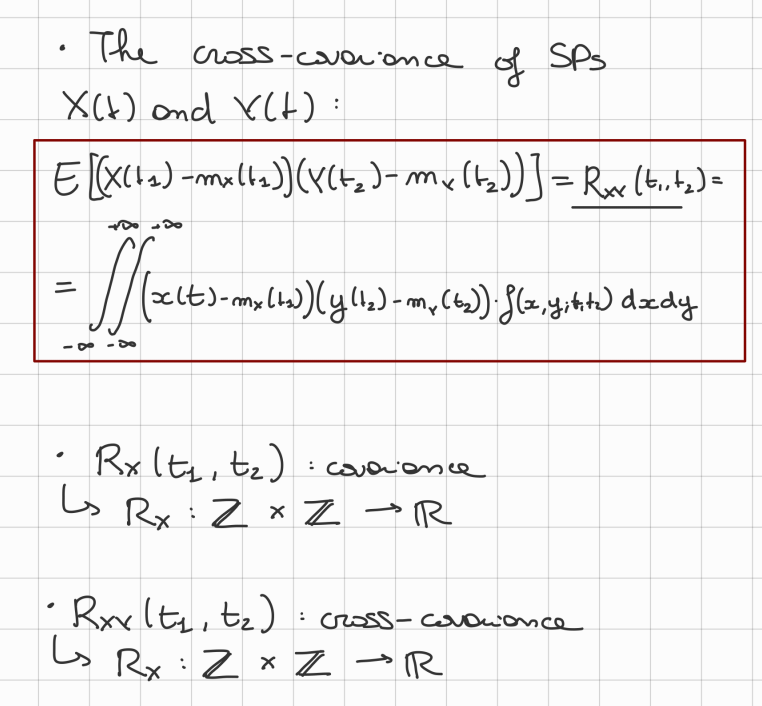 · The cross-covariance of SPs
X(t) and Y(t) :
E[(X(t₁) - mₓ(t₁))(Y(t₂) - mᵧ(t₂))] = Rₓᵧ(t₁,t₂) =
+∞ +∞
= ∬ (x(t) - mₓ(t₁))(y(t₂) - mᵧ(t₂)) · f(x,y;t₁,t₂) dxdy
-∞ -∞
· Rₓ(t₁, t₂) : covariance
↳ Rₓ : ℤ × ℤ → ℝ
· Rₓᵧ(t₁, t₂) : cross-covariance
↳ Rₓ : ℤ × ℤ → ℝ